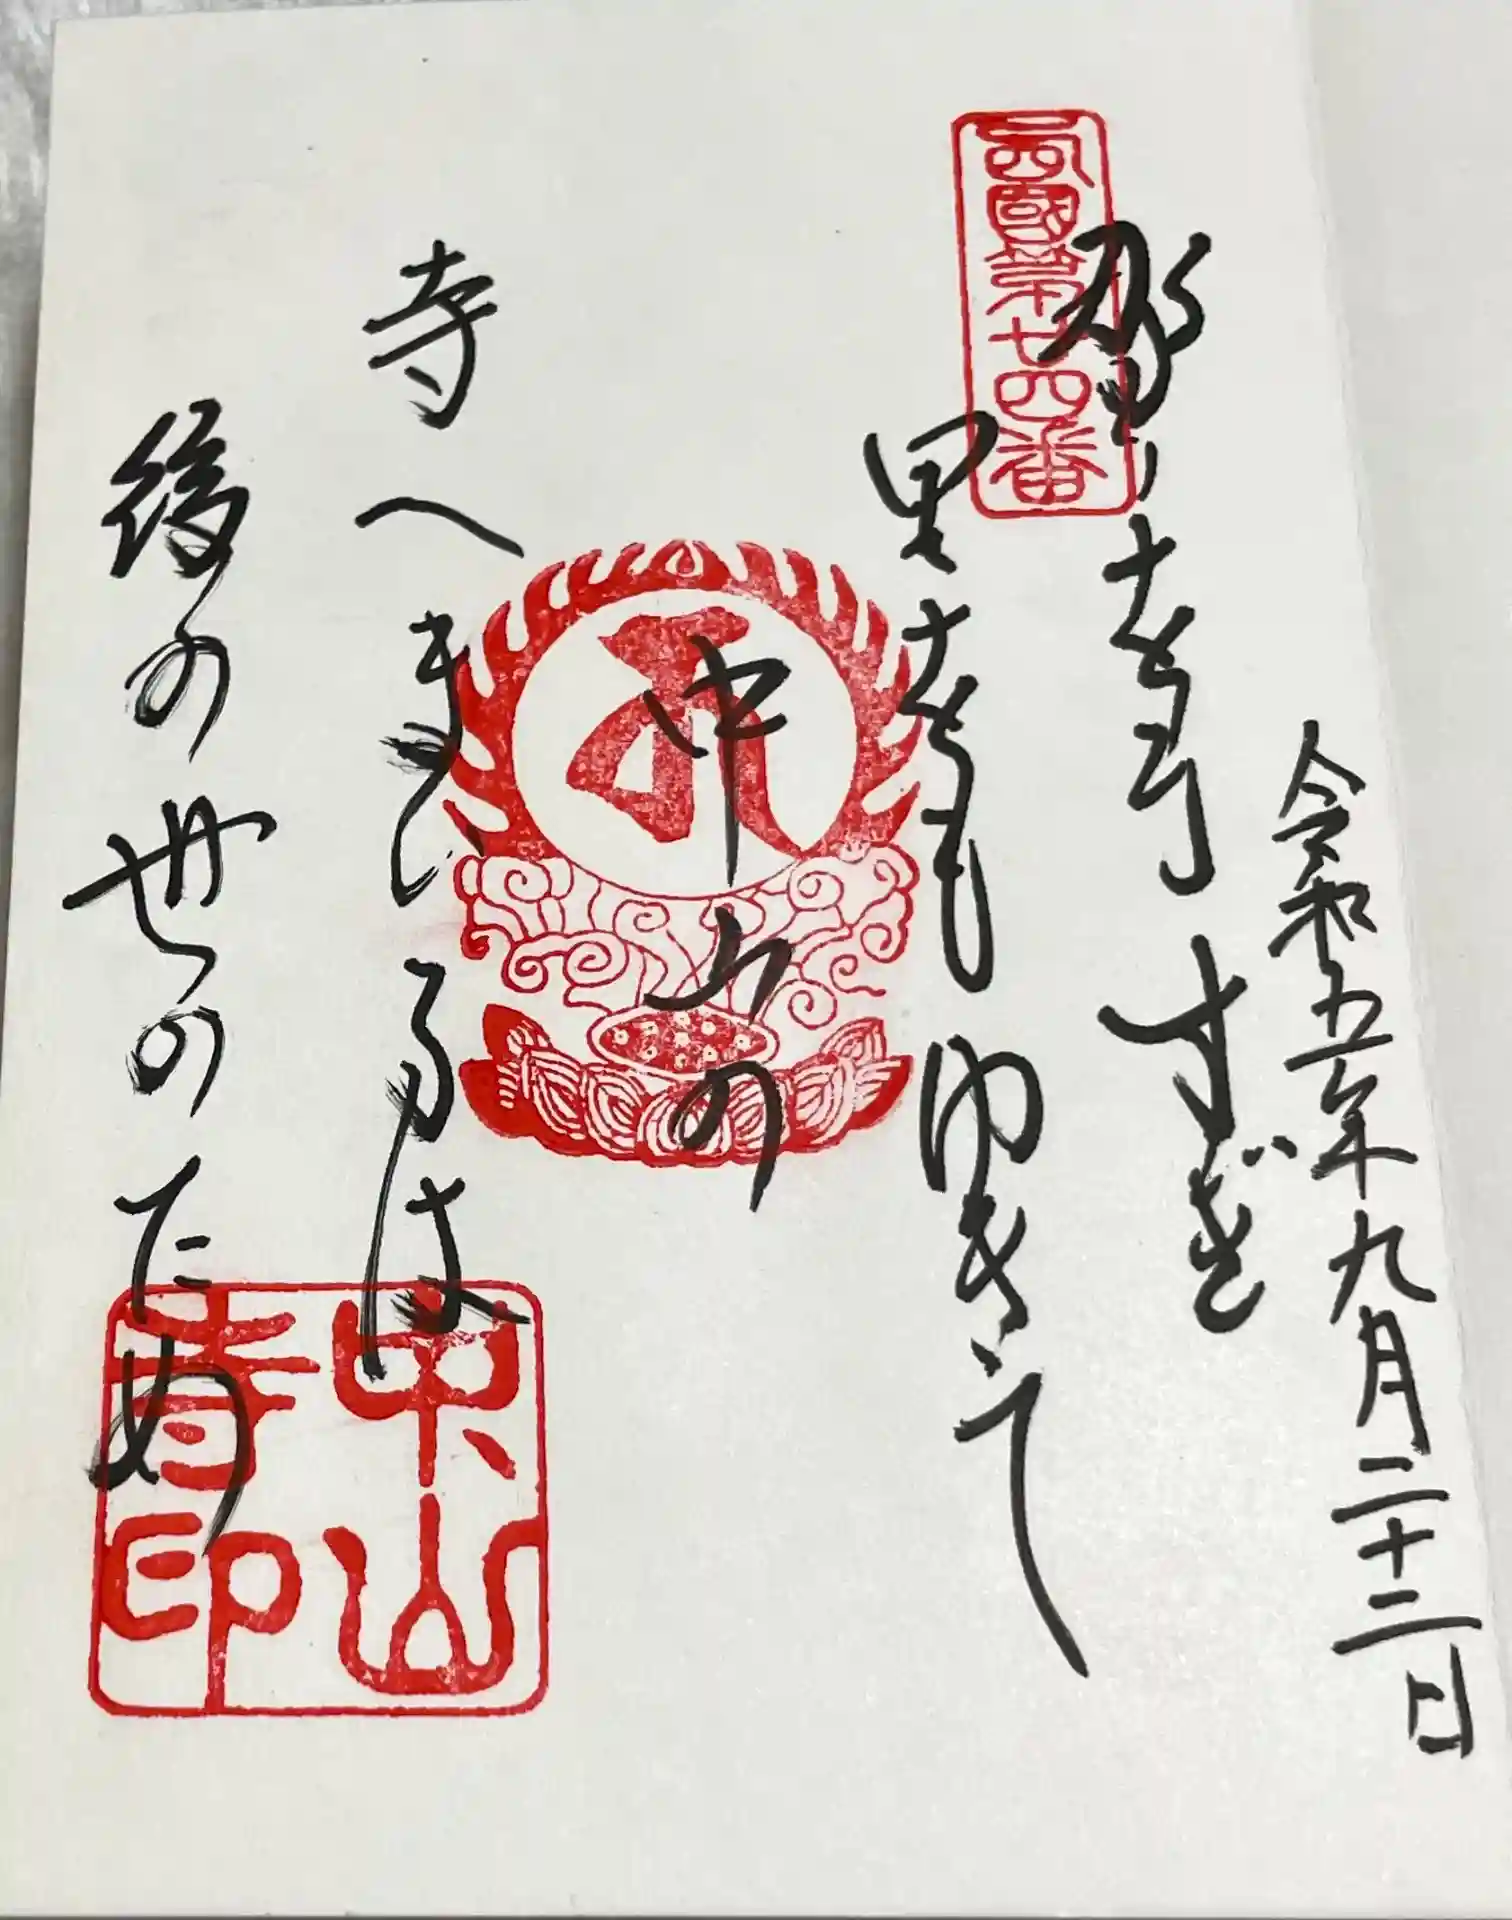 令和五年九月二十三日
西國第廿四番
野をもすぎ
里をもゆきて
中山の
寺へまいるは
後の世のため
中山
寺印